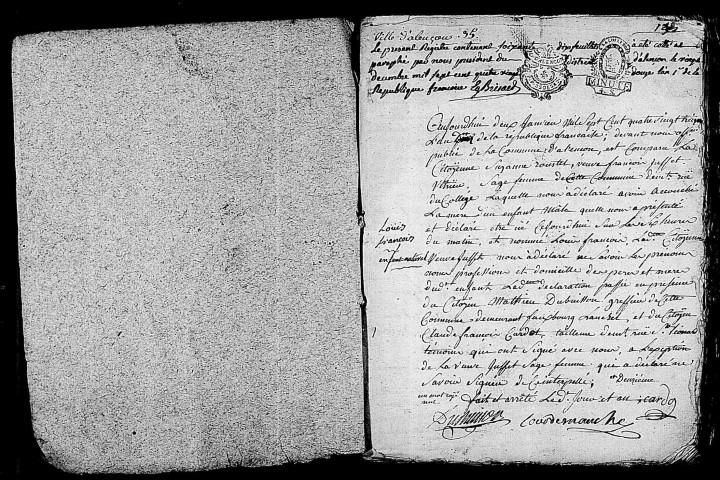 Ville d'alençon . 35.
Le present Registre contenant soixante dix feuillets a été coté et
paraphé par nous president du district d'alençon le vingt
decembre mil sept cent quatre vingt douze l'an 1er de la
Republique francoise
MINUTE
Cejourdhui deux Janvier Mil Sept Cent quatre vingt treize
L'an de la république francaise, devant nous officier
public de la Commune d'alencon, est Comparu La
Citoyenne Suzanne veuve francois Juffet
Sage femme de Cette Commune demt rue
du College Laquelle nous a déclaré avoir accouché
La mere d'un enfant Mâle quelle nous a présenté
et déclaré être né Cejourdhui Sur Les six heures
du matin, et nommé Louis francois, Lad. Citoyenne
Veuve Juffet nous a déclaré ne Savoir Les prenoms
noms profession et domicille des pere et mere
dud. enfant Lad. declaration passée en presence
du Citoyen Mathieu Dubuisson greffier de Cette
Commune demeurant fauxbourg et du Citoyen
Claude francois Cardot, tailleur demt rue
témoins qui ont Signé avec nous, a Lexception
de La Veuve Juffet Sage femme qui a déclaré ne
Savoir Signer de Ce interpellé, Deuxieme
un mot rayé
nul
fait et arrêté Led. Jour et an Cardot
Dubuisson Courdemanche
Louis
francois
enfant naturel